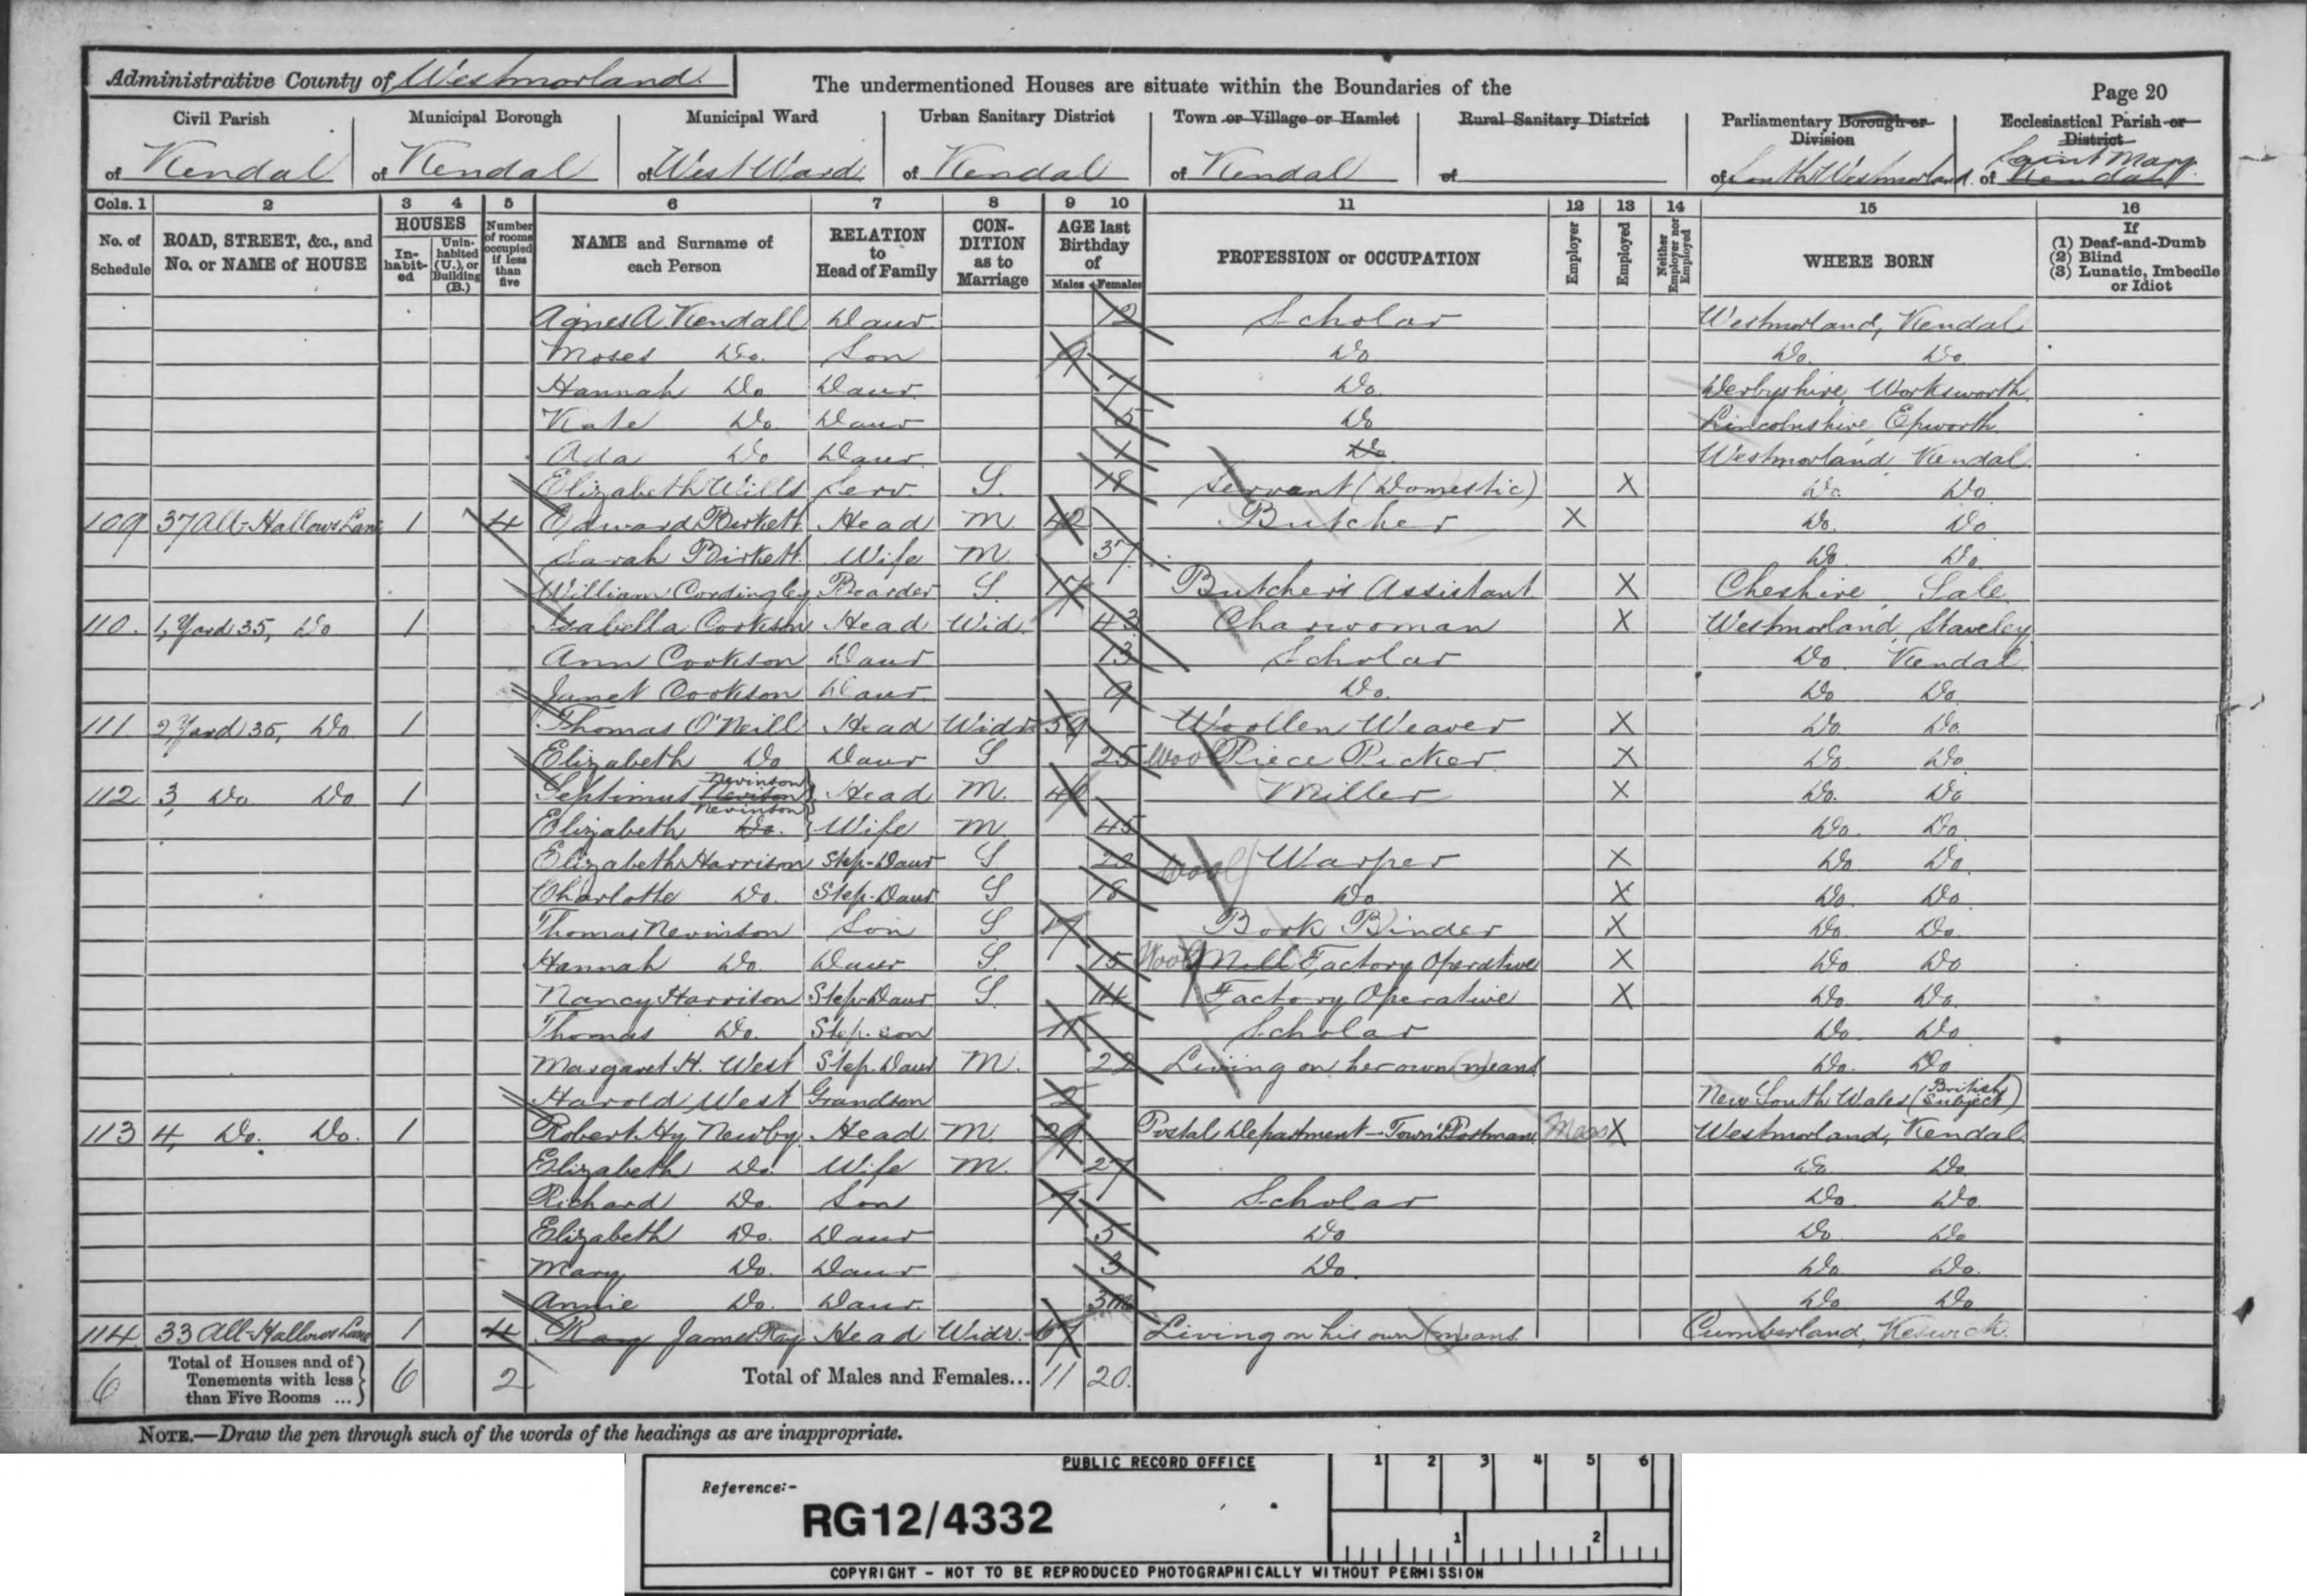 Administrative County of Westmorland
The undermentioned Houses are situate within the Boundaries of the
Page 20
Civil Parish Municipal Borough Municipal Ward Urban Sanitary District Town or Village or Hamlet Rural Sanitary District Parliamentary Borough or Division Ecclesiastical Parish or District
of Kendal of Kendal of West Ward of Kendal of Kendal of of South Westmorland of Saint Mary Kendal
Cols. 1 2 3 4 5 6 7 8 9 10 11 12 13 14 15 16
No. of Schedule ROAD, STREET, &c., and No. or NAME of HOUSE HOUSES Inhabited Uninhabited (U.), or Building (B.) Number of rooms occupied if less than five NAME and Surname of each Person RELATION to Head of Family CONDITION as to Marriage AGE last Birthday of Males Females PROFESSION or OCCUPATION Employer Employed Neither Employer nor Employed WHERE BORN If (1) Deaf-and-Dumb (2) Blind (3) Lunatic, Imbecile or Idiot
Agnes A. Kendall Daur. 12 Scholar Westmorland, Kendal
Moses Do. Son 9 Do Do. Do.
Hannah Do Daur. 7 Do. Derbyshire, Worksworth
Kate Do Daur 5 Do Lincolnshire, Epworth
Ada Do Daur. 1 Do Westmorland, Kendal
Elizabeth Wills Serv. S. 18 Servant (Domestic) X Do. Do
109 37 All-Hallows Lane 1 4 Edward Birkett Head M 42 Butcher X Do. Do
Sarah Birkett Wife M 37 Do Do.
William Cordingley Boarder S 17 Butcher's Assistant X Cheshire, Sale
110. 1, Yard 35, Do 1 Isabella Cookson Head Wid. 43 Charwoman X Westmorland, Staveley
Ann Cookson Daur 13 Scholar Do. Kendal
Janet Cookson Daur. 9 Do. Do Do.
111 2 Yard 35, Do 1 Thomas O'Neill Head Widr 59 Woollen Weaver X Do. Do.
Elizabeth Do Daur S 25 Wool Piece Picker X Do Do
112 3, Do. Do 1 Septimus Nevinson Head M. Miller X Do. Do
Elizabeth Nevinson Do. Wife M 45 Do. Do
Elizabeth Harrison Step-Daur S Wool Warper X Do Do.
Charlotte Do. Step-Daur S 18 Do X Do. Do.
Thomas Nevinson Son S 17 Book Binder X Do. Do.
Hannah Do. Daur S. 15 Wool Mill Factory Operative X Do Do
Nancy Harrison Step-Daur S. 14 Factory Operative X Do Do.
Thomas Do. Step-son 11 Scholar Do Do
Margaret H. West Step-Daur M. 22 Living on her own means Do. Do
Harold West Grandson 2 New South Wales (British Subject)
113 4, Do. Do. 1 Robert Hy Newby Head M. 29 Postal Department - Town Postman X Westmorland, Kendal
Elizabeth Do. Wife M. 27 Do. Do
Richard Do. Son 7 Scholar Do. Do.
Elizabeth Do. Daur 5 Do Do Do
Mary Do. Daur 3 Do. Do Do.
Annie Do. Daur. 3m Do Do
114. 33 All-Hallows Lane 1 4 Ray James Ray Head Widr. Living on his own means Cumberland, Keswick.
6 Total of Houses and of Tenements with less than Five Rooms ... 6 2 Total of Males and Females... 11 20
NOTE.—Draw the pen through such of the words of the headings as are inappropriate.
PUBLIC RECORD OFFICE
1 2 3 4 5 6
Reference:-
RG12/4332
1 2
COPYRIGHT - NOT TO BE REPRODUCED PHOTOGRAPHICALLY WITHOUT PERMISSION